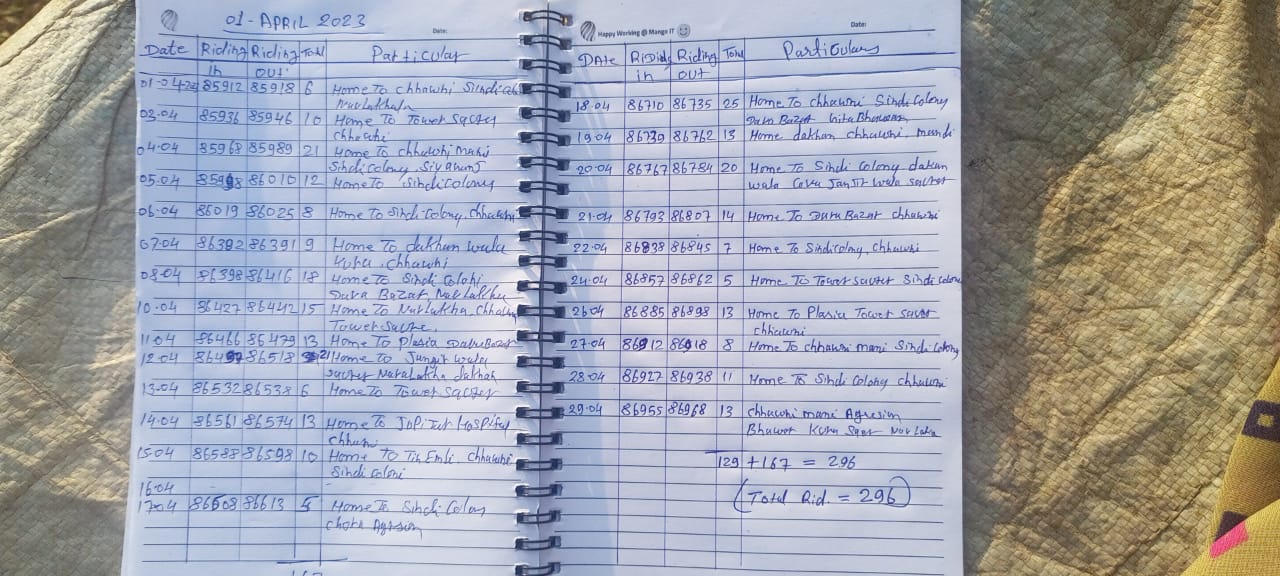 01 - APRIL 2023
Date:
Date Riding in Riding out Total Particular
01-04-23 85912 85918 6 Home To chhawni Sindi
Navlakha
03.04 85936 85946 10 Home To Tower Sqczer
chhawni
04.04 85968 85989 21 Home To chhawni Mani
Sindi Colony, Siyaganj
05.04 85998 86010 12 Home To Sindi Colony
06.04 86019 86025 8 Home To Sindi Colony, Chhawni
07.04 86382 86391 9 Home To dakhan wala
Kuha, Chhawni
08.04 86398 86416 18 Home To Sindi Colohi
Dava Bazar, Navlakha
10.04 86427 86442 15 Home To Navlakha, chhawni
Tower
11.04 86466 86479 13 Home To Plasia Dava Bazar
12.04 86497 86518 21 Home To Junjir wala
Navalakha dakhan
13.04 86532 86538 6 Home To Tower
14.04 86561 86574 13 Home To JuPiter HosPital
chhawni
15.04 86588 86598 10 Home To Tin Emli, chhawni
Sindi Coloni
16.04
17.04 86608 86613 5 Home To Sindi Colony
167
Happy Working @ Mango IT
Date:
DAte Riding in Riding out Total Particulars
18.04 86710 86735 25 Home To chhawni Sindi Colony
Dava Bazar Gita Bhawan
19.04 86739 86762 13 Home dakhan chhawni, mandi
20.04 86767 86784 20 Home To Sindi Colony dakan
wala Janjir wala
21.04 86793 86807 14 Home To Dava Bazar chhawni
22.04 86838 86845 7 Home To Sindicolny, Chhawni
24.04 86857 86862 5 Home To Tower Sindi Colony
26.04 86885 86898 13 Home To Plasia Tower
chhawni
27.04 86912 86918 8 Home To chhawni mani Sindi Colony
28.04 86927 86938 11 Home To Sindi Colony chhawni
29.04 86955 86968 13 chhawni mani Agresin
Bhawer Kuha Navlaka
129 + 167 = 296
(Total Rid. = 296)